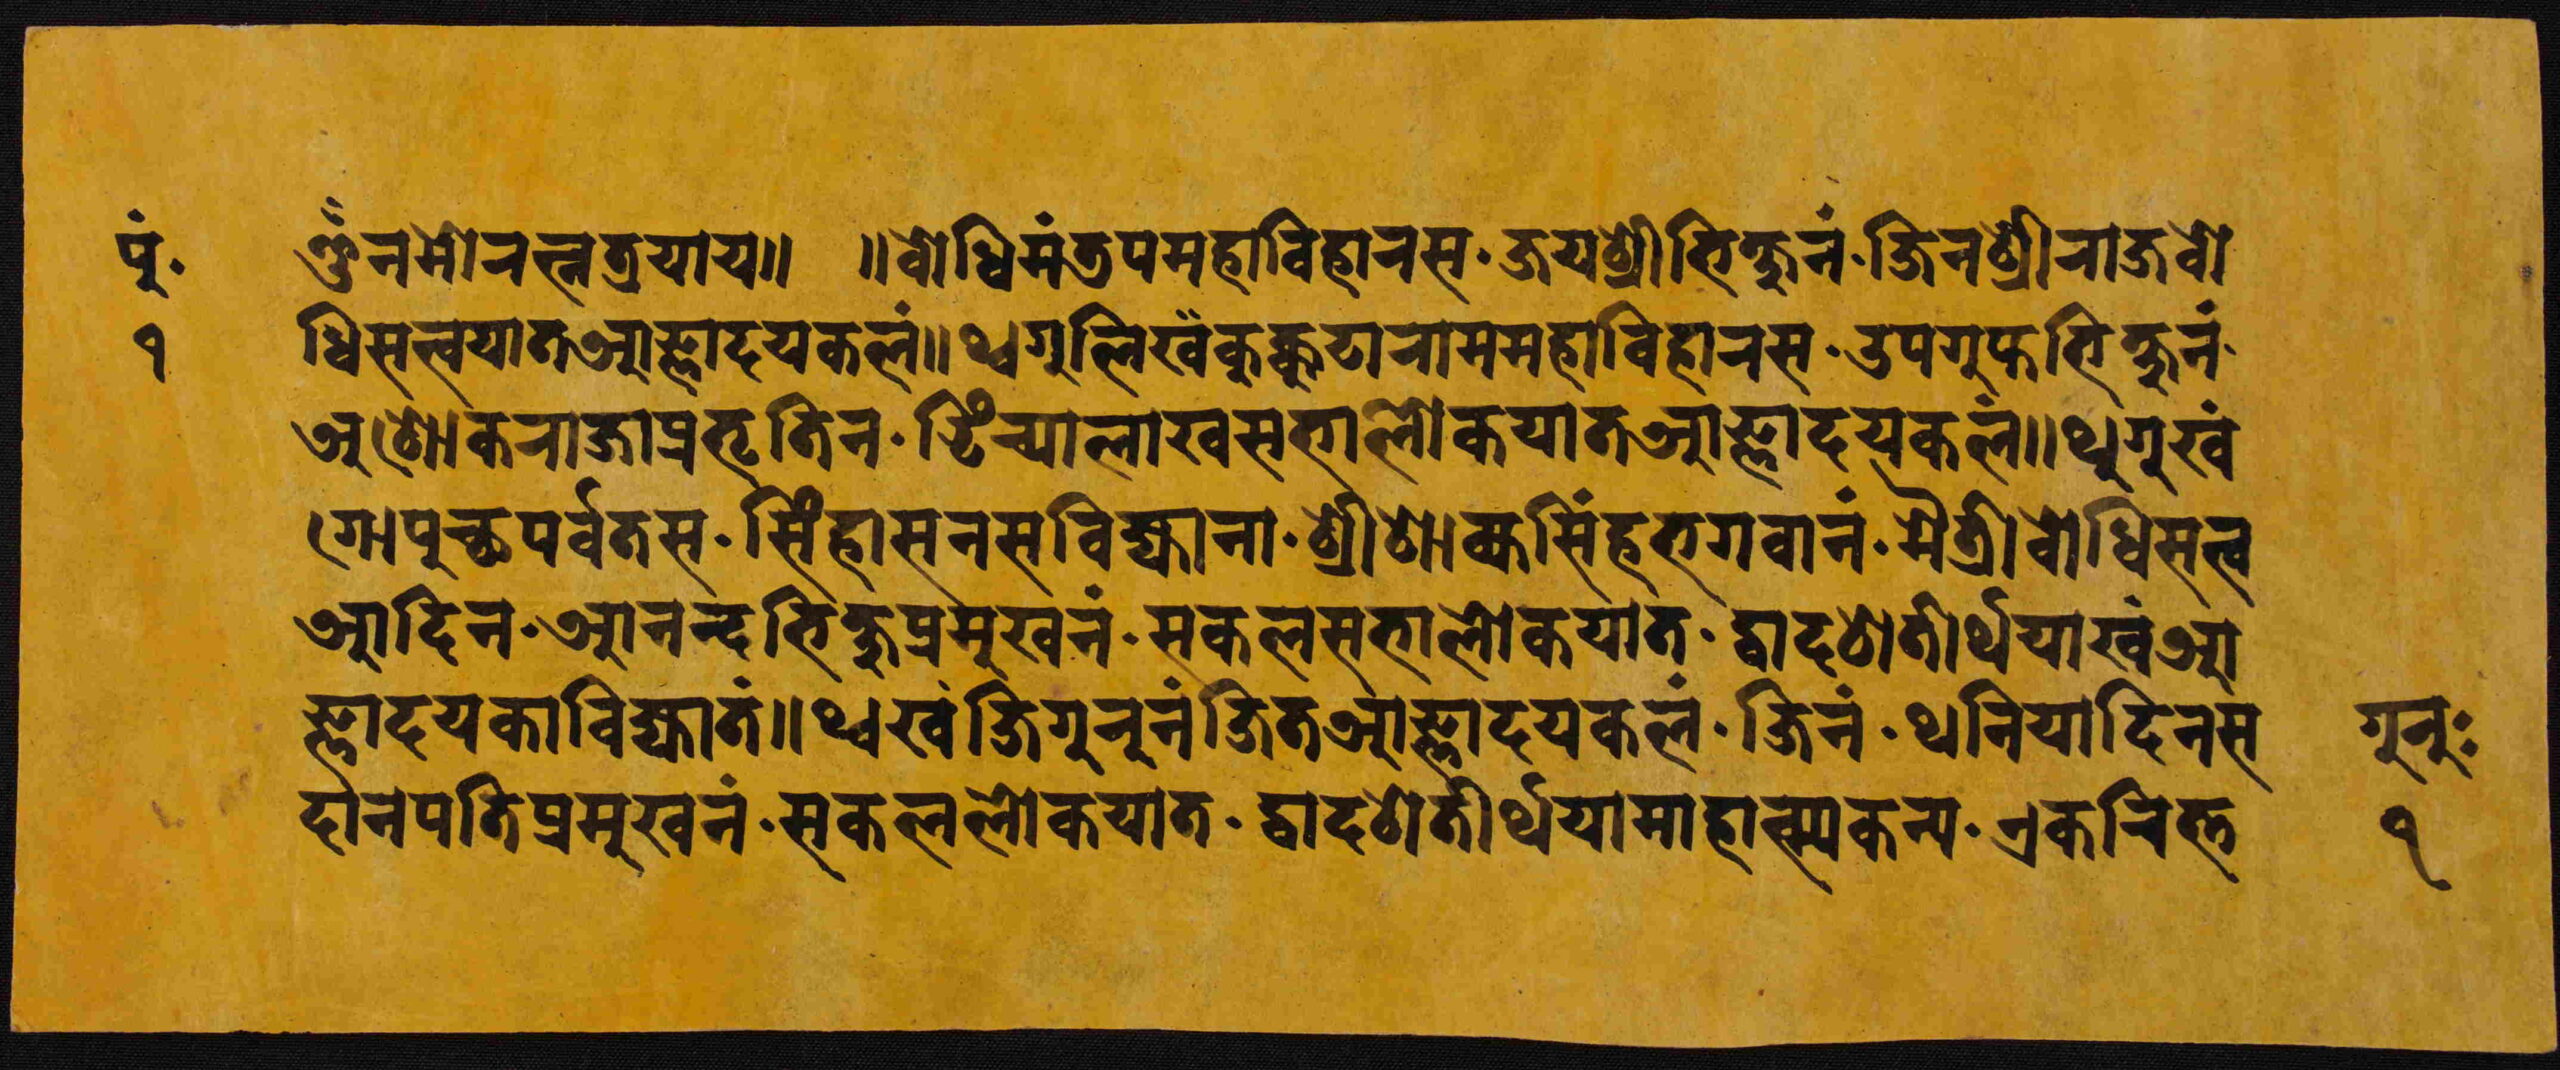 पुं॰
१
ॐ नमो रत्नत्रयाय॥ ॥ बोधिमंतपमहाविहारस॰ जयश्रीभिक्षुनं॰ जिनश्रीराजबो
धिसत्त्वयात आज्ञादयकलं॥ थ्व गुलिखँ कुक्कुटाराममहाविहारस॰ उपगुप्तभिक्षुनं॰
अशोकराजाप्रभृतिन॰ ङिच्यालाख सभालोकयात आज्ञादयकलं॥ थुगु खं
गोपुच्छपर्वतस॰ सिंहासनस विज्याना॰ श्रीशाक्यसिंहभगवानं॰ मैत्रीबोधिसत्त्व
आदिन॰ आनन्दभिक्षुप्रमुखनं॰ सकलसभालोकयात॰ द्वादशतीर्थया खं आ
ज्ञादयका विज्यातं॥ थ्व खं जिगुरुनं जित आज्ञादयकलं॰ जिनं॰ थनियादिनस
दानपतिप्रमुखनं॰ सकललोकयात॰ द्वादशतीर्थया माहात्म्य कन्य॰ एकचित्त
गुरुः॰
१